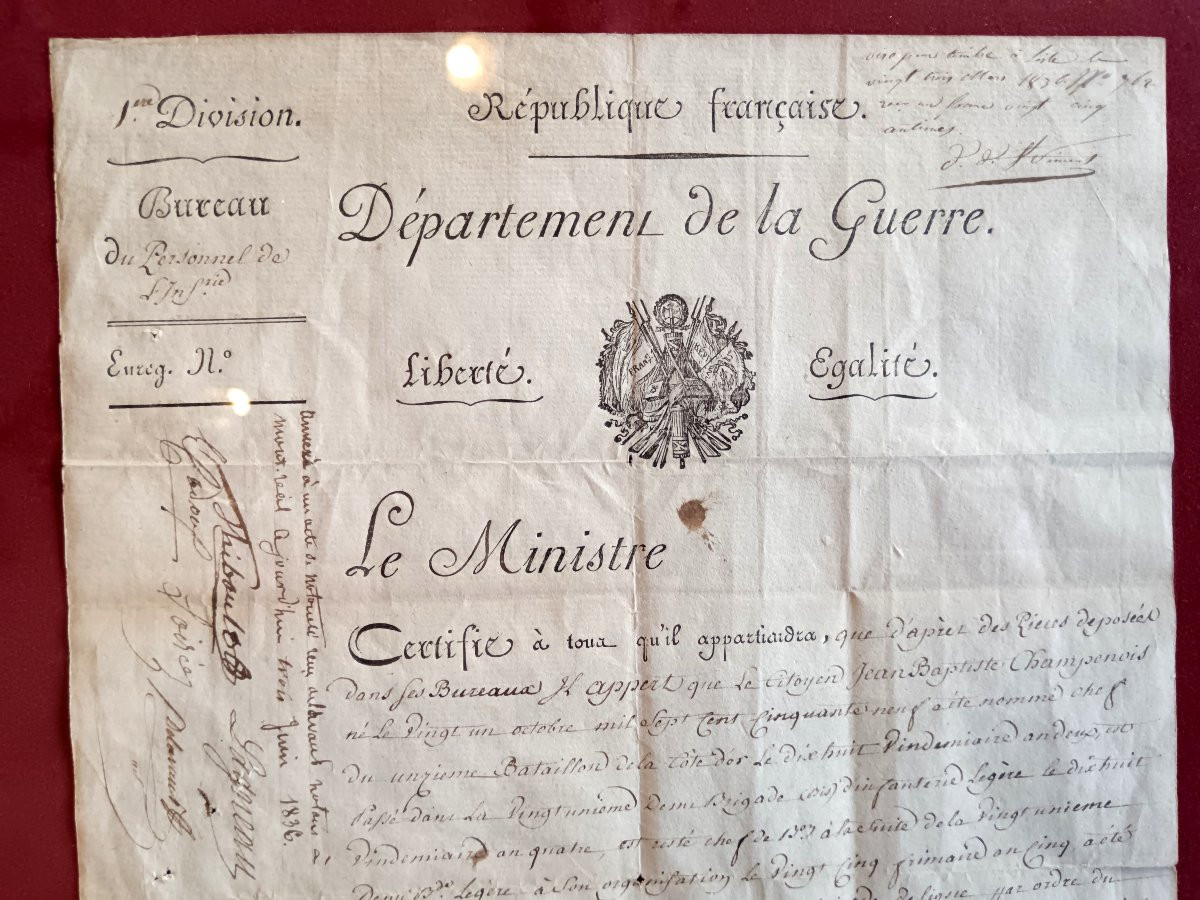 1.ere Division.
République française.
vingt cinq Mars 1836
vingt cinq
centimes.
Bureau
du Personnel de
L'Inf.rie
Département de la Guerre.
Enreg. N.o
Liberté.
Egalité.
annexé à un acte de notoriété reçu devant notaire à
Montreuil aujourd'hui trois Juin 1836.
Thiboulot
Voirin
Le Ministre
Certifie à tous qu'il appartiendra, que d'après des Pièces deposées
dans ses Bureaux Il appert que Le Citoyen Jean Baptiste Champenois
né Le Vingt un octobre mil Sept Cent Cinquante neuf a été nommé chef
du unzième Bataillon de la Côte d'or Le dix huit Vindemiaire an deux, est
Passé dans La Vingt unième Demi Brigade (bis) d'infanterie Legère le dix huit
Vindemiaire an quatre, est resté chef de B.on à la suite de la Vingt unieme
Demi B.de Legère à Son organisation Le Vingt Cinq frimaire an Cinq a été
de ligne par ordre du